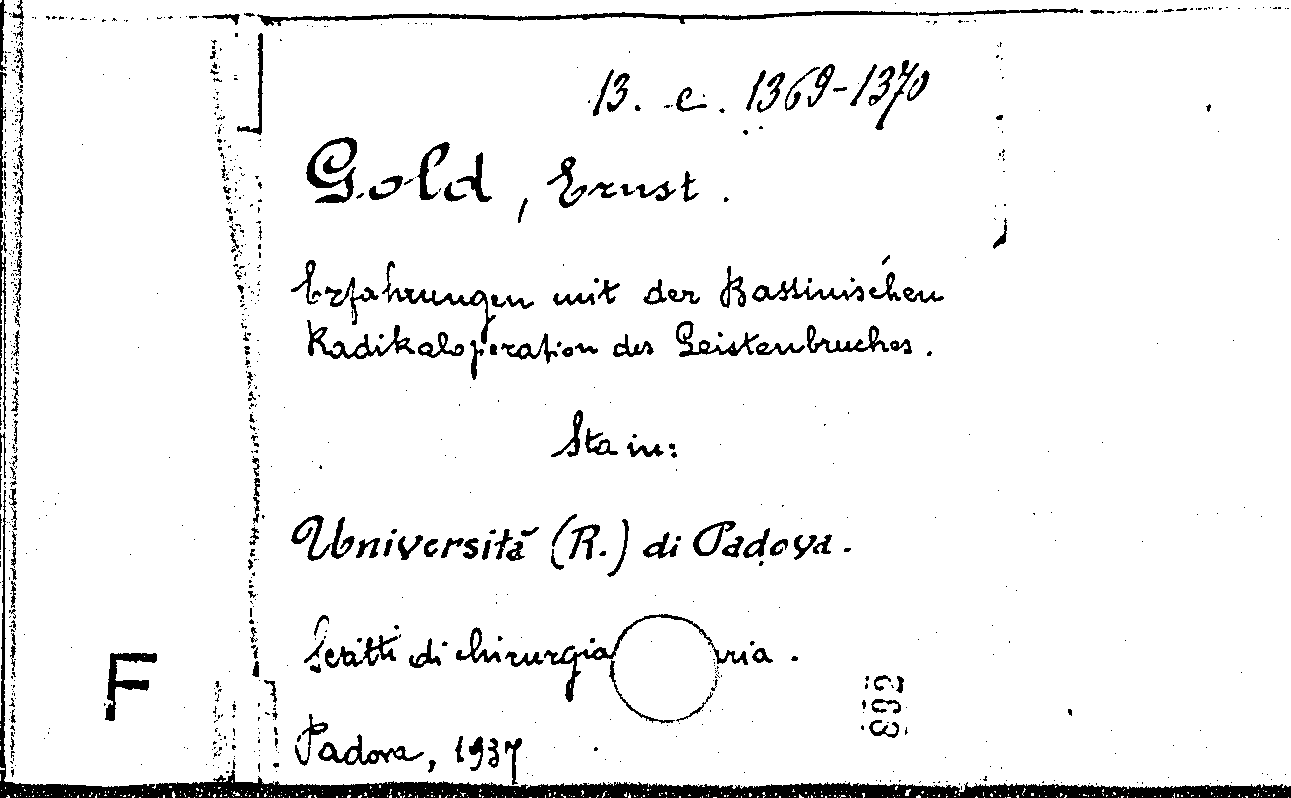 13. c. 1369-1370
Gold, Ernst.
Erfahrungen mit der Bassinischen
Radikaloperation des Leistenbruches.
Sta in:
Università (R.) di Padova.
Scritti di chirurgia ria.
Padova, 1937
F
892